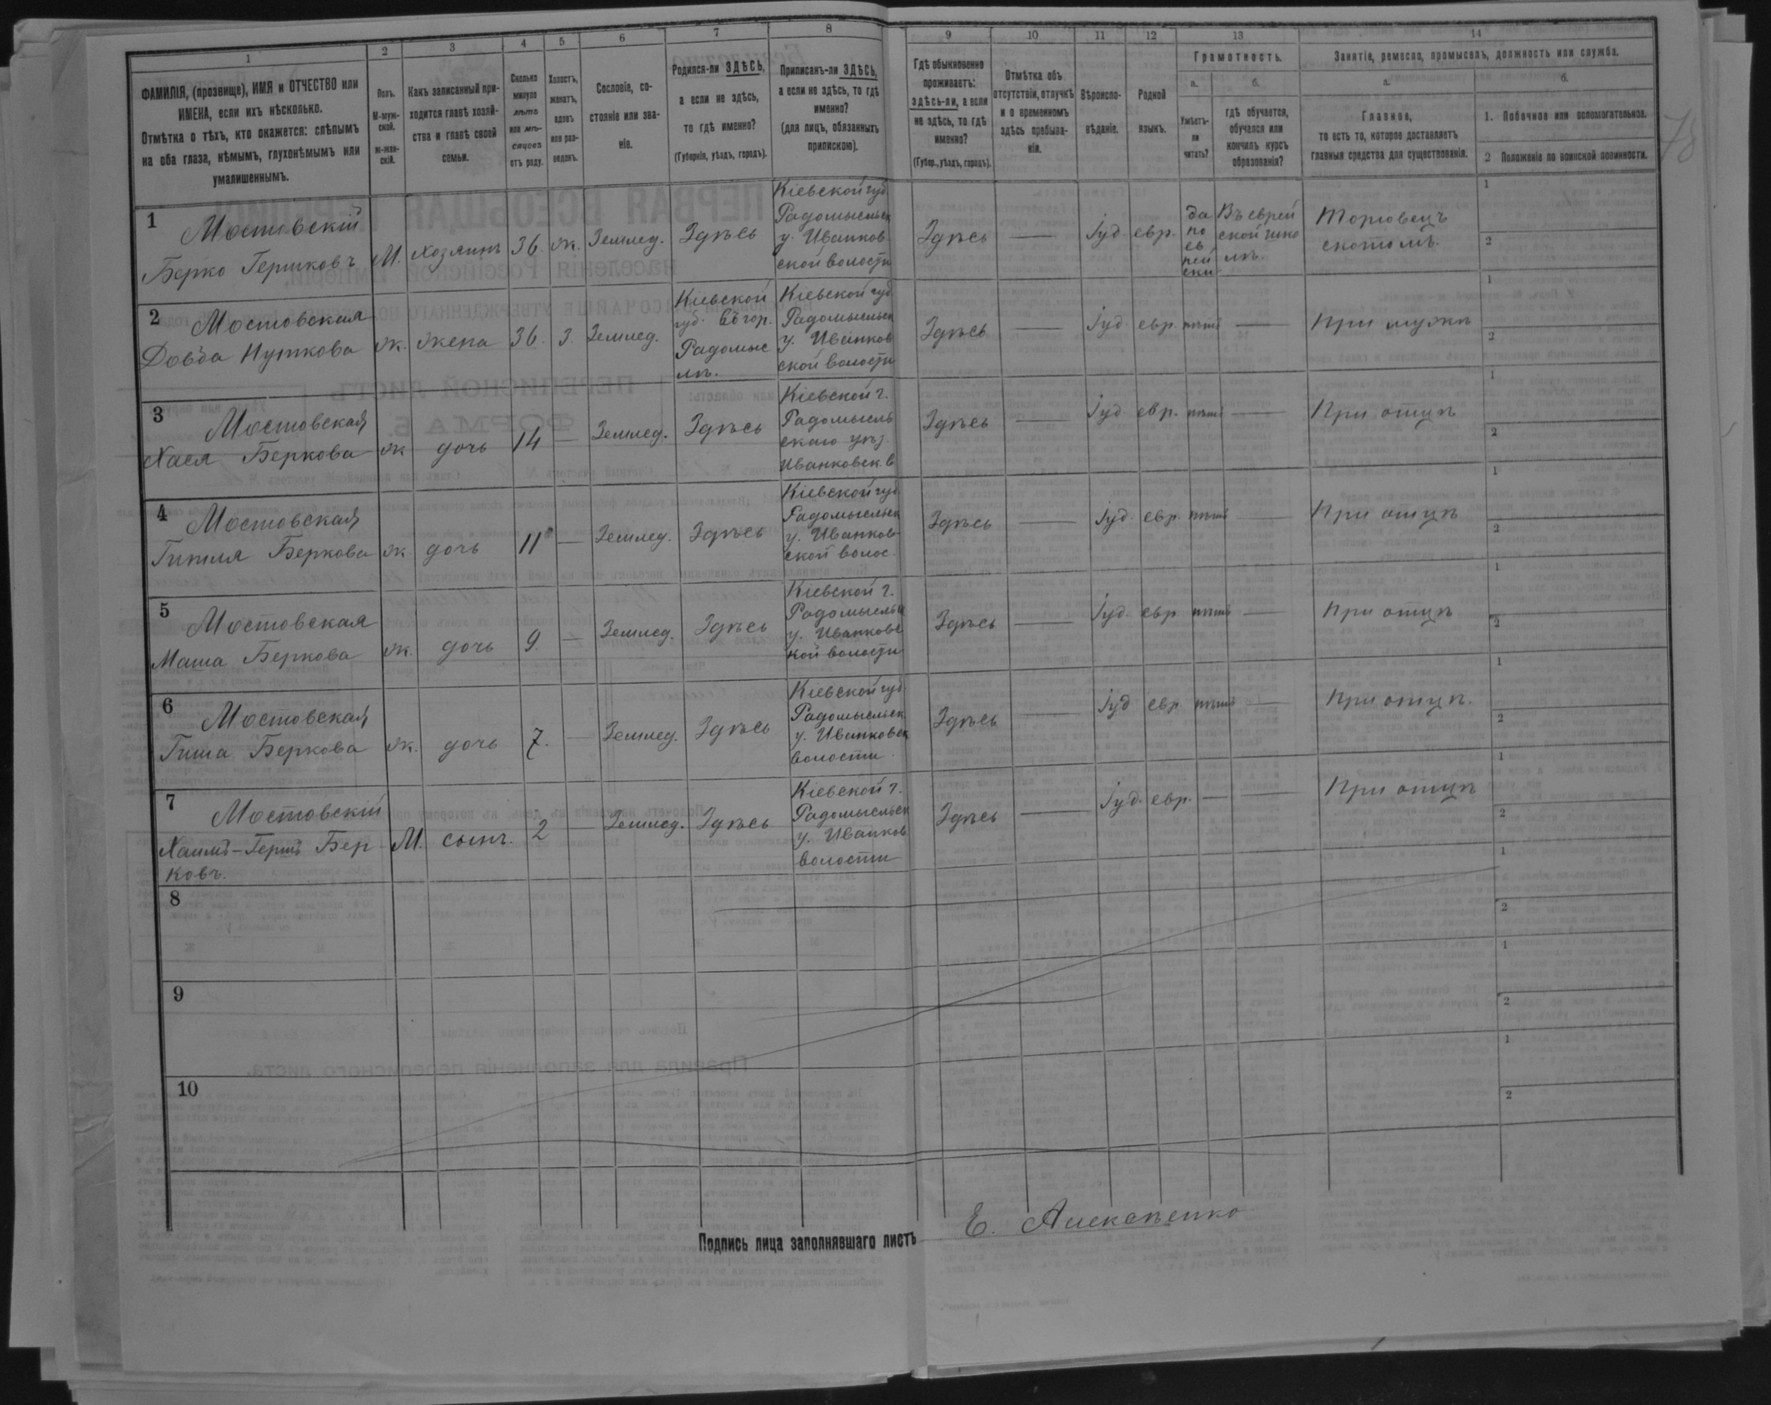 1
2
3
4
5
6
7
8
9
10
11
12
13
14
ФАМИЛІЯ, (прозвище), ИМЯ и ОТЧЕСТВО или
ИМЕНА, если ихъ нѣсколько.
Отмѣтка о тѣхъ, кто окажется: слѣпымъ
на оба глаза, нѣмымъ, глухонѣмымъ или
умалишеннымъ.
Полъ.
М-муж-
ской.
Ж-жен-
скій.
Какъ записанный при-
ходится главѣ хозяй-
ства и главѣ своей
семьи.
Сколько
минуло
лѣтъ
или мѣ-
сяцевъ
отъ роду.
Холостъ,
женатъ,
вдовъ
или раз-
веденъ.
Сословіе, со-
стояніе или зва-
ніе.
Родился-ли ЗДѢСЬ,
а если не здѣсь,
то гдѣ именно?
(Губернія, уѣздъ, городъ).
Приписанъ-ли ЗДѢСЬ,
а если не здѣсь, то гдѣ
именно?
(для лицъ, обязанныхъ
припискою).
Гдѣ обыкновенно
проживаетъ:
здѣсь-ли, а если
не здѣсь, то гдѣ
именно?
(Губер., уѣздъ, городъ).
Отмѣтка объ
отсутствіи, отлучкѣ
и о временномъ
здѣсь пребыва-
ніи.
Вѣроиспо-
вѣданіе.
Родной
языкъ.
Грамотность.
а.
б.
Умѣетъ-
ли
читать?
гдѣ обучается,
обучался или
кончилъ курсъ
образованія?
Занятіе, ремесло, промыселъ, должность или служба.
а.
б.
Главное,
то есть то, которое доставляетъ
главныя средства для существованія.
1. Побочное или вспомогательное.
2 Положеніе по воинской повинности.
78
1 Мостовскій
Берко Гершковъ
М. хозяинъ 36. ж. Землед. Здѣсь
Кіевской губ.
Радомысльск
у. Иванков
ской волости
Здѣсь — Іуд. евр.
да
по
ев
рей
ски
Въ еврей
ской шко
лѣ.
Торговецъ
скотомъ.
1
2
2 Мостовская
Довба Нуткова
ж. жена 36. з. Землед.
Кіевской
губ. въ гор.
Радомыс
лѣ.
Кіевской губ
Радомысльск
у. Иванков
ской волости
Здѣсь — Іуд. евр. нѣтъ — При мужѣ
1
2
3 Мостовская
Хася Беркова
ж дочь 14 — Землед. Здѣсь
Кіевской г.
Радомысль
скаго уѣз
Иванковск. в
Здѣсь — Іуд евр. нѣтъ — При отцѣ
1
2
4 Мостовская
Гитля Беркова
ж дочь 11 — Землед. Здѣсь
Кіевской губ
Радомысльск
у. Иванков
ской волос
Здѣсь — Іуд. евр. нѣтъ — При отцѣ
1
2
5 Мостовская
Маша Беркова
ж. дочь 9. — Землед. Здѣсь
Кіевской г.
Радомысльск
у. Иванковс
кой волости
Здѣсь — Іуд. евр нѣтъ — При отцѣ
1
2
6 Мостовская
Гиша Беркова
ж. дочь 7. — Землед. Здѣсь
Кіевской губ
Радомысльск
у. Иванковск
волости
Здѣсь — Іуд евр нѣтъ — При отцѣ.
1
2
7 Мостовскій
Хаимъ-Гершъ Бер
ковъ.
М. сынъ. 2 — Землед. Здѣсь
Кіевской г.
Радомысльск
у. Иванков
волости
Здѣсь — Іуд. евр. — — При отцѣ
1
2
8
1
2
9
1
2
10
1
2
Подпись лица заполнявшаго листъ
Е.